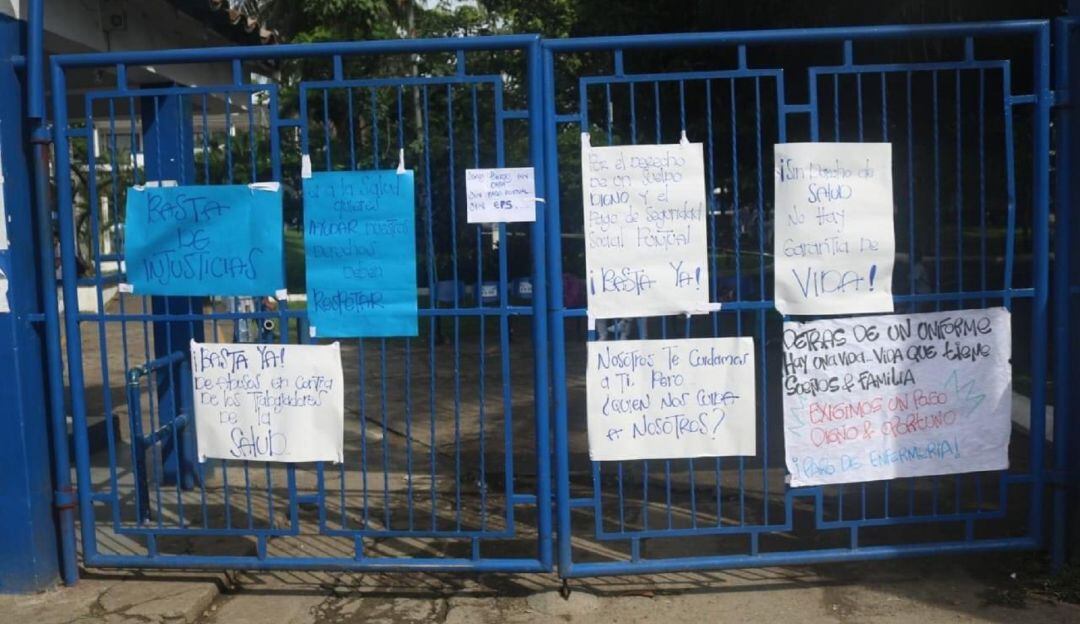 BASTA
DE
INJUSTICIAS
a la Salud
quieres
AYUDAR nuestros
Derechos
Deben
RESPETAR
SIN PAGO PUNTUAL
SIN EPS...
Por el Derecho
De un Sueldo
DIGNO, Y el
Pago de Seguridad
Social PUNTUAL
¡BASTA YA!
¡Sin Derecho de
SALUD
No Hay
Garantia De
VIDA!
¡BASTA YA!
De Abusos en Contra
De los Trabajadores
De la
SALUD.
Nosotros Te Cuidamos
a Ti, Pero
¿QUIEN NOS CUIDA
A NOSOTROS?
DETRAS DE UN UNIFORME
HAY UNA VIDA... VIDA QUE tIENE
SUEÑOS & FAMILIA
EXIGIMOS UN PAGO
DIGNO & OPORTUNO
¡PARO DE ENFERMERIA!